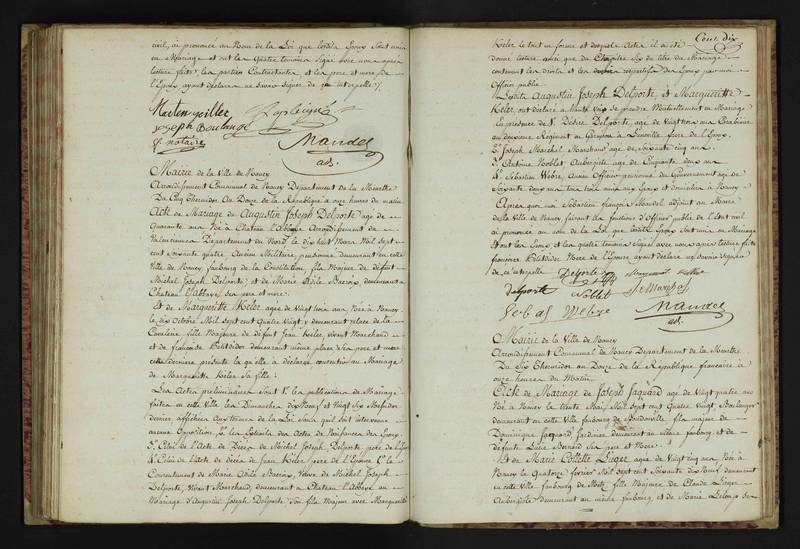 civil, ai prononcé au Nom de la Loi que lesdits Epoux sont unis
en Mariage et ont les quatre temoins Signé avec nous après
lecture faite, les parties Contractantes et les pere et mere de
l'Epoux ayant déclaré ne savoir signer de ce interpellés
Joseph Boulangé
notaire
Mandel
adj.
Mairie de la Ville de Nancy
Arrondissement Communal de Nancy Département de la Meurthe
Du Cinq Thermidor An Douze de la République à onze heures du matin
Acte de Mariage de Augustin Joseph Delporte agé de
Quarante ans Né à Chateau l'Abbaye Arrondissement de
Valenciennes Département du Nord le dix huit Mars Mil Sept
cent Soixante quatre, Ancien Militaire, pensionné demeurant en cette
Ville de Nancy faubourg de la Constitution, fils Majeur de défunt
Michel Joseph Delporte, et de Marie Adile Barris, demeurant à
Chateau l'Abbaye ses pere et mere
Et de Margueritte Keler agée de Vingt ans Née à Nancy
le dix Octobre Mil Sept cent Quatre Vingt, y demeurant
fille Majeure de défunt Jean Keler, vivant Marchand
et de françoise demeurant même place Ses pere et mere
cette derniere présente laquelle a déclaré consentir au Mariage
de Margueritte Keler Sa fille
Les Actes préliminaires Sont 1° les publications de Mariage
faites en cette Ville les Dimanches dix Neuf et Vingt Six Messidor
dernier affichées aux termes de la Loi Sans qu'il soit intervenu
aucune Opposition 2° les Extraits des Actes de Naissances des Epoux
3° Celui de l'Acte de Décès de Michel Joseph Delporte père de l'Epoux
4° Celui de l'Acte de Décès de Jean Keler père de l'Epouse 5° le
Consentement de Marie Adile Barris, Veuve de Michel Joseph
Delporte, Vivant Marchand, demeurant à Chateau l'Abbaye au
Mariage d'Augustin Joseph Delporte Son fils Majeur avec Margueritte
Cent dix
Keler le tout en forme et desquels Actes il a été
donné lecture ainsi que du Chapitre Six du titre du Mariage
contenant les droits et les devoirs respectifs des Epoux par moi
Officier public
Lesdits Augustin Joseph Delporte, et Margueritte
Keler, ont déclaré à haute voix se prendre Mutuellement en Mariage
en présence de 1° Désiré Delporte, agé de Vingt ans Carabinier
au deuxieme Régiment en Garnison à Luneville frere de l'Epoux
2° Joseph Marchal Marchand agé de Soixante cinq ans
3° Antoine Noblot Aubergiste agé de Cinquante deux ans
4° Sébastien Webre, Ancien Militaire pensionné du Gouvernement agé de
Soixante deux ans tous trois amis aux Epoux et domiciliés à Nancy
Après quoi moi Sébastien françois Mandel adjoint au Maire
de la Ville de Nancy faisant les fonctions d'Officier public de l'Etat civil
ai prononcé au nom de la Loi que lesdits Epoux Sont unis en Mariage
et ont les Epoux et les quatre temoins Signé avec nous après lecture faite
françoise Mere de l'Epouse ayant déclaré ne savoir signer
de ce interpellée
Delporte
Delporte
Noblot
Mandel
adj.
Mairie de la Ville de Nancy
Arrondissement Communal de Nancy Département de la Meurthe
Du Six Thermidor an Douze de la République française à
onze heures du Matin
Acte de Mariage de Joseph Jaquard agé de Vingt quatre ans
Né à Nancy le trente Mai, Mil Sept cent Quatre Vingt, Boulanger
demeurant en cette Ville faubourg de fils majeur de
Dominique Jaquard Jardinier demeurant au même faubourg et de
défunte Lucie Bernard Ses pere et Mere
Et de Marie Collette Lieger agée de Vingt cinq ans Née à
Nancy le Quatorze fevrier Mil Sept cent Soixante dix Neuf, demeurant
en cette Ville faubourg de Metz, fille Majeure de Claude Lieger
Aubergiste demeurant au même faubourg et de Marie